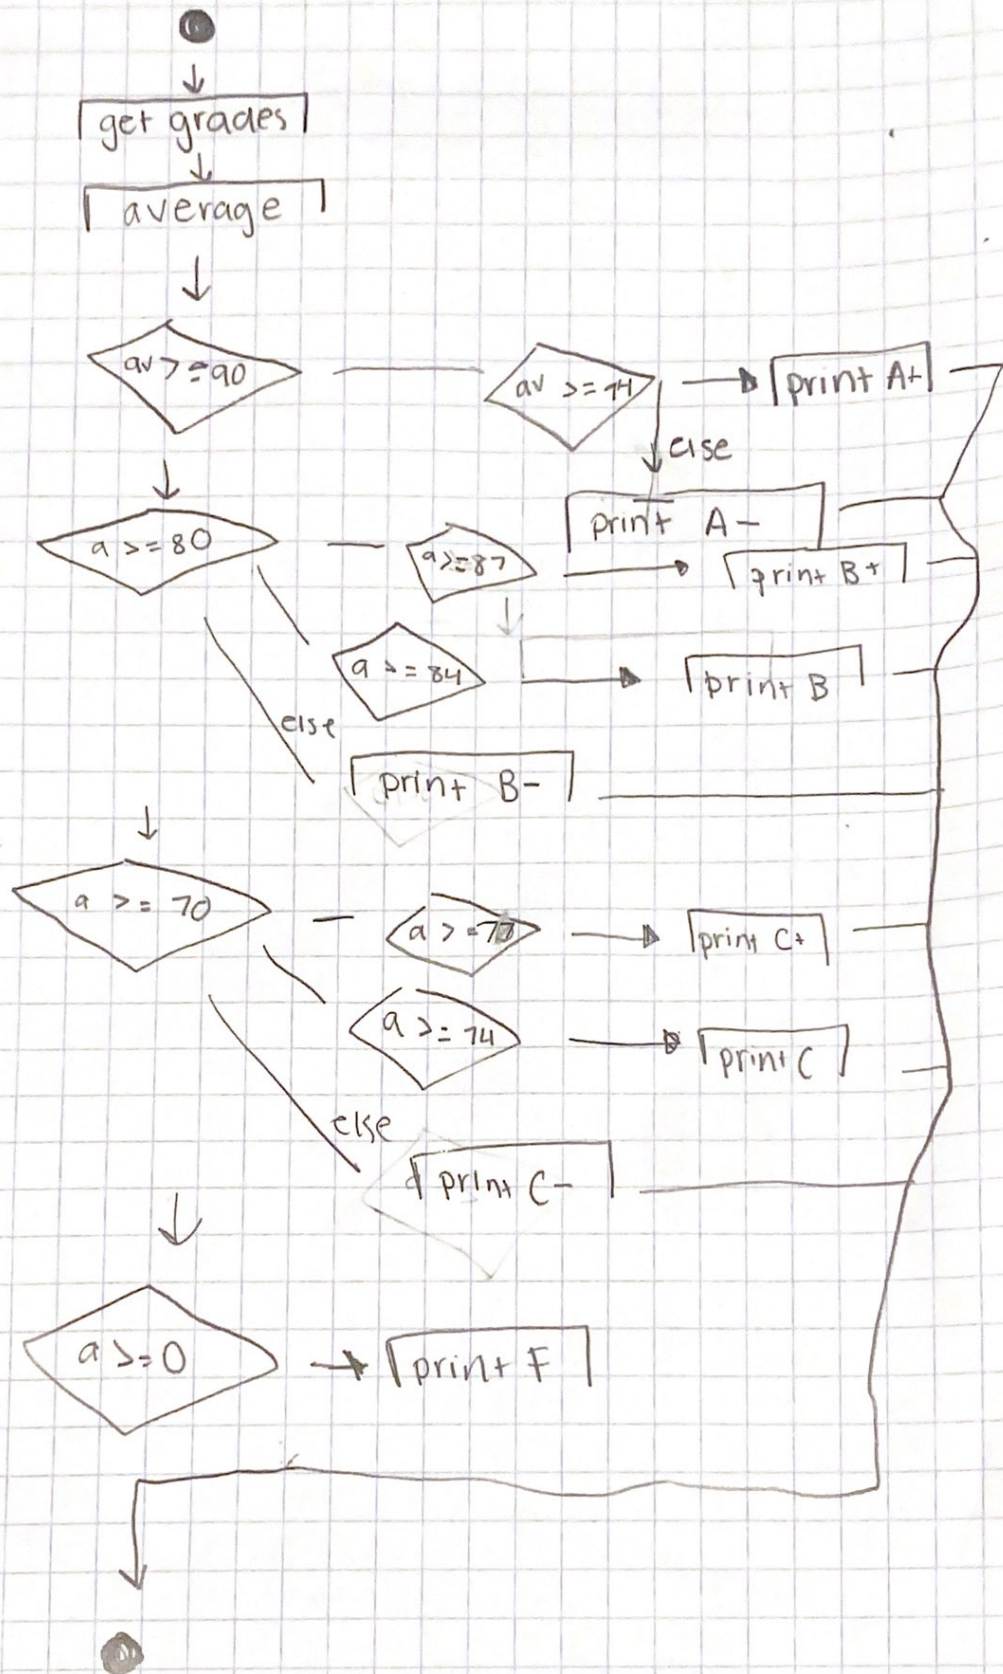 get grades
average
av >=90
av >=94
print A+
else
print A-
a >=80
a>=87
print B+
a >=84
print B
else
print B-
a >= 70
a >=77
print C+
a >= 74
print C
else
print C-
a >=0
print F